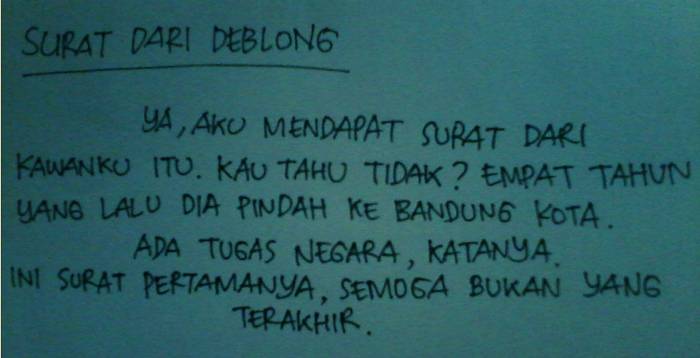 SURAT DARI DEBLONG
YA, AKU MENDAPAT SURAT DARI
KAWANKU ITU. KAU TAHU TIDAK? EMPAT TAHUN
YANG LALU DIA PINDAH KE BANDUNG KOTA.
ADA TUGAS NEGARA, KATANYA.
INI SURAT PERTAMANYA, SEMOGA BUKAN YANG
TERAKHIR.